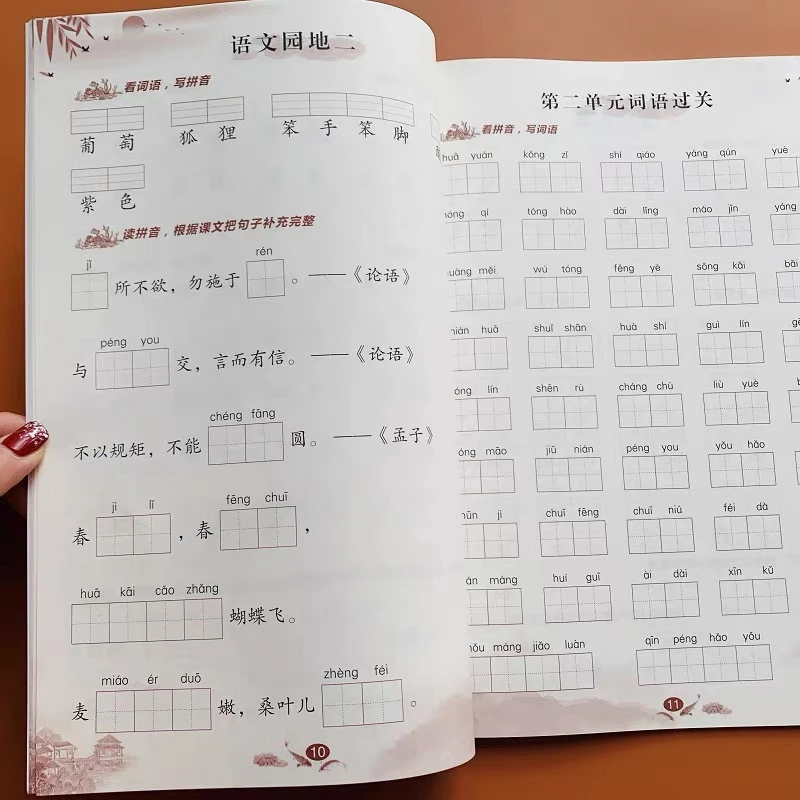 语文园地二
看词语，写拼音
葡 萄 狐 狸 笨 手 笨 脚
紫 色
读拼音，根据课文把句子补充完整
jǐ rén
所不欲，勿施于 。——《论语》
péng you
与 交，言而有信。——《论语》
chéng fāng
不以规矩，不能 圆。——《孟子》
jì lǐ fēng chuī
春 ，春 ，
huā kāi cǎo zhǎng
蝴蝶飞。
miáo ér duō zhèng féi
麦 嫩，桑叶儿 。
10
第二单元词语过关
看拼音，写词语
huā yuán kǒng zǐ shí qiáo yáng qún yuè
qì tóng hào dài lǐng máo jīn yáng
měi wú tóng fēng yè sōng kāi
huā shuǐ shān huà shí guì lín
lín shēn rù cháng chù liù yuè
māo jiǔ nián péng you yǒu hǎo
jì chuī fēng chuī niú féi dà
máng huí guī ài dài xīn kǔ
máng jiāo luàn qīn péng hǎo yǒu
11